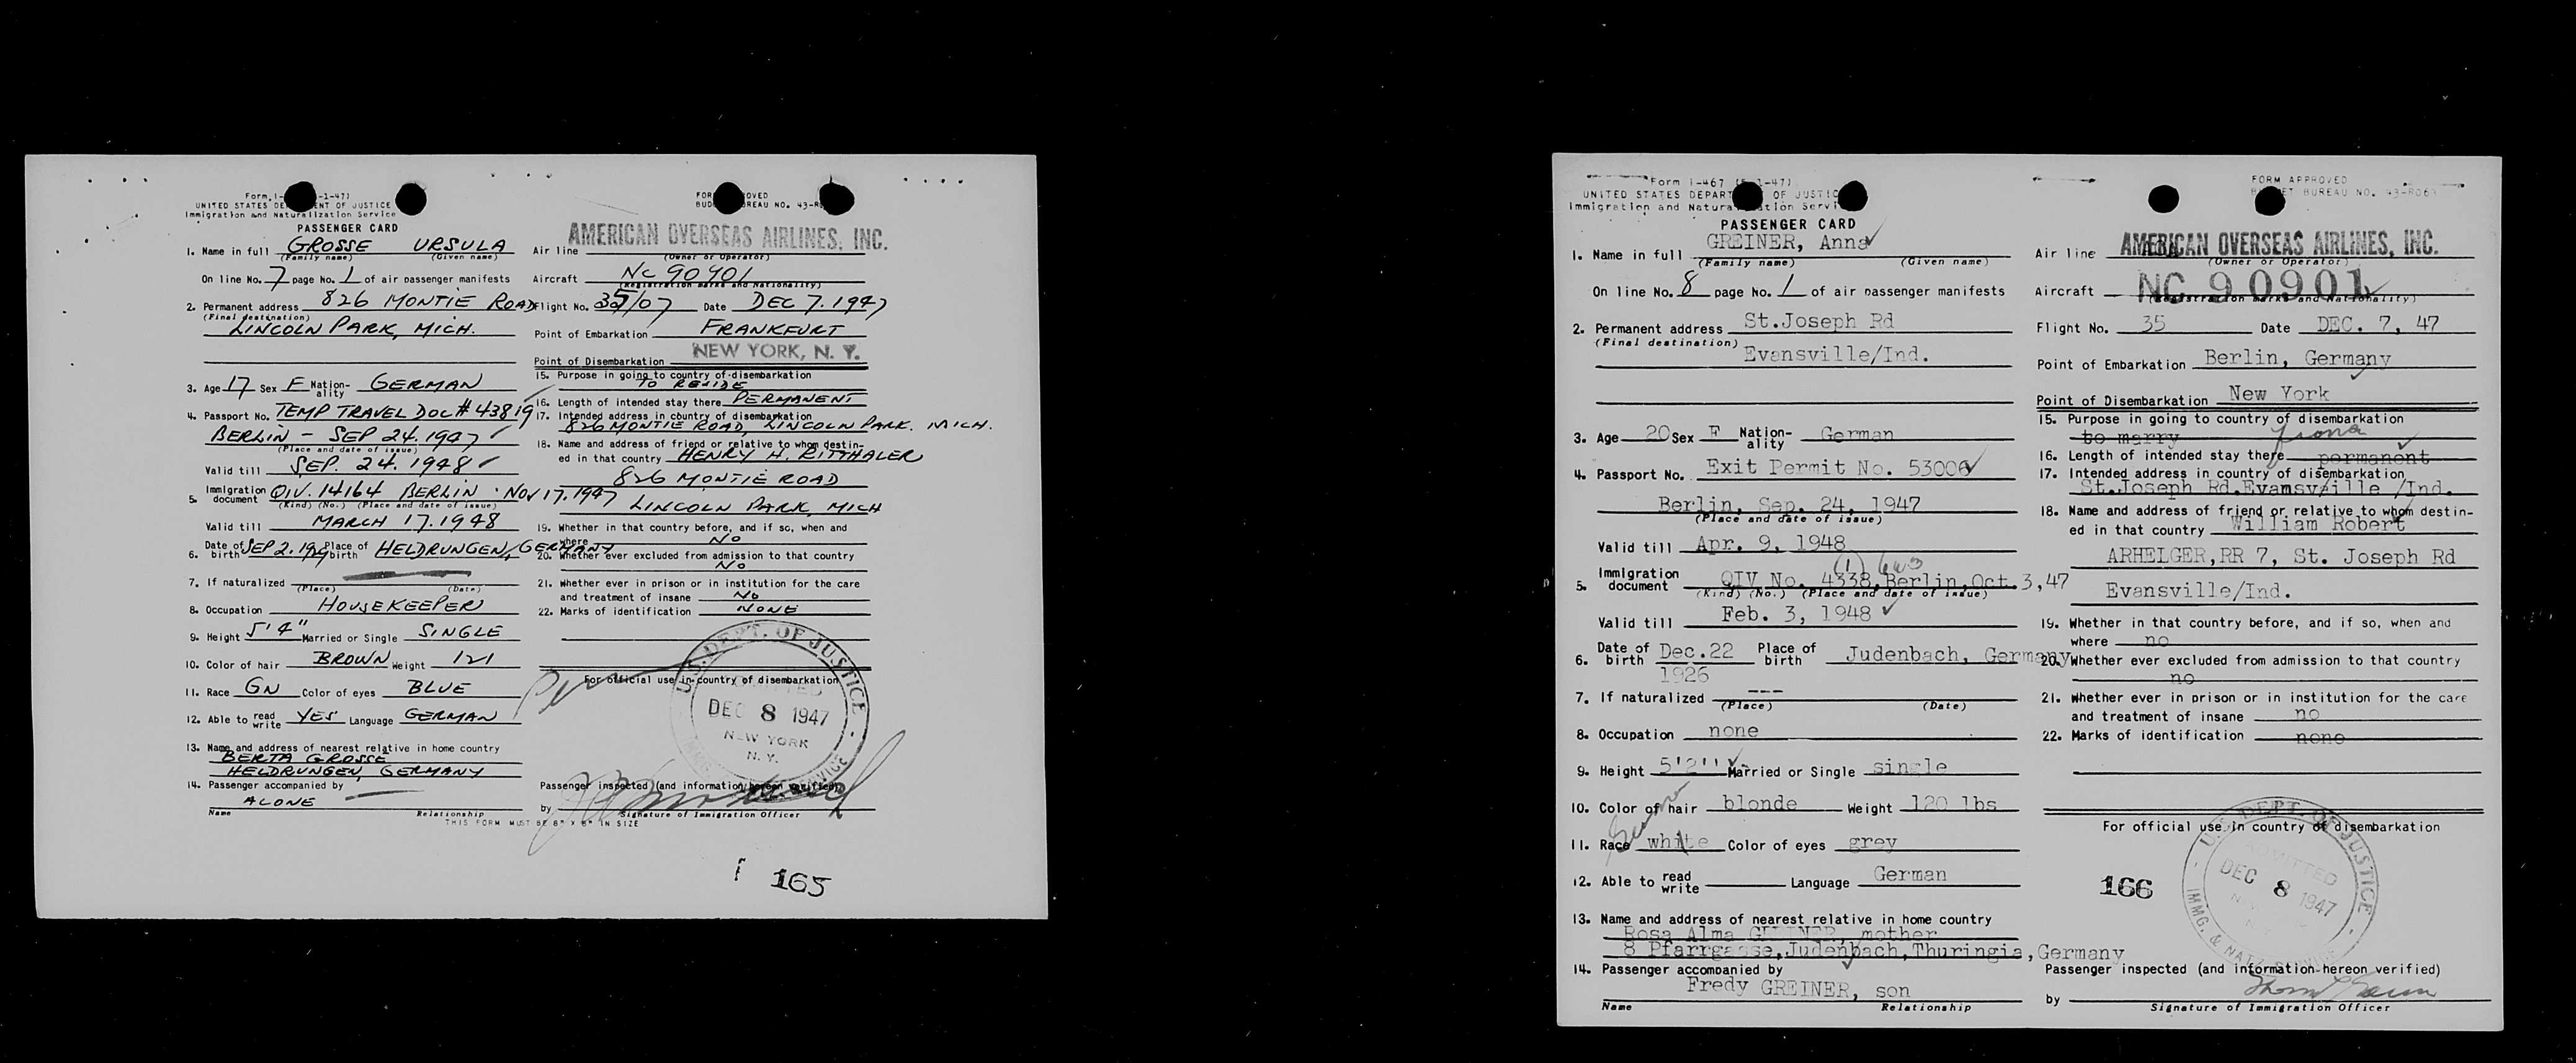 Form I- -1-47)
UNITED STATES DE ENT OF JUSTICE
Immigration and Naturalization Service
PASSENGER CARD
1. Name in full GROSSE URSULA
(Family name) (Given name)
On line No. 7 page No. 1 of air passenger manifests
2. Permanent address 826 MONTIE ROAD
(Final destination)
LINCOLN PARK, MICH.
3. Age 17 Sex F Nation-ality GERMAN
4. Passport No. TEMP TRAVEL DOC # 43819
BERLIN - SEP 24. 1947
(Place and date of issue)
Valid till SEP. 24. 1948
5. Immigration document QIV. 14164 BERLIN . NOV 17. 1947
(Kind) (No.) (Place and date of issue)
Valid till MARCH 17. 1948
6. Date of birth SEP 2. Place of birth HELDRUNGEN, GERMANY
7. If naturalized
(Place) (Date)
8. Occupation HOUSEKEEPER
9. Height 5' 4" Married or Single SINGLE
10. Color of hair BROWN Weight 121
11. Race GN Color of eyes BLUE
12. Able to read write YES Language GERMAN
13. Name and address of nearest relative in home country
BERTA GROSSE
HELDRUNGEN, GERMANY
14. Passenger accompanied by
ALONE
Name Relationship
THIS FORM MUST BE 8" X 8" IN SIZE
FOR OVED
BUD REAU NO. 43-R
AMERICAN OVERSEAS AIRLINES, INC.
Air line
(Owner or Operator)
Aircraft NC 90901
(Registration marks and Nationality)
Flight No. 35/07 Date DEC 7. 1947
Point of Embarkation FRANKFURT
Point of Disembarkation NEW YORK, N. Y.
15. Purpose in going to country of disembarkation
TO RESIDE
16. Length of intended stay there PERMANENT
17. Intended address in country of disembarkation
826 MONTIE ROAD, LINCOLN PARK. MICH.
18. Name and address of friend or relative to whom destin-
ed in that country HENRY H. RITTHALER
826 MONTIE ROAD
LINCOLN PARK, MICH
19. Whether in that country before, and if so, when and
where NO
20. Whether ever excluded from admission to that country
NO
21. Whether ever in prison or in institution for the care
and treatment of insane NO
22. Marks of identification NONE
For official use in country of disembarkation
U.S. DEPT. OF JUSTICE
ADMITTED
DEC 8 1947
NEW YORK
N. Y.
Passenger inspected (and information hereon verified)
by
Signature of Immigration Officer
165
Form I-467 ( -1-47)
UNITED STATES DEPART OF JUSTIC
Immigration and Natura ation Servi
PASSENGER CARD
1. Name in full GREINER, Anna
(Family name) (Given name)
On line No. 8 page No. 1 of air passenger manifests
2. Permanent address St.Joseph Rd
(Final destination) Evansville/Ind.
3. Age 20 Sex F Nation-ality German
4. Passport No. Exit Permit No. 53006
Berlin, Sep. 24, 1947
(Place and date of issue)
Valid till Apr. 9, 1948
5. Immigration document QIV No. 4338,Berlin,Oct.3,47
(Kind) (No.) (Place and date of issue)
Valid till Feb. 3, 1948
6. Date of birth Dec.22 1926 Place of birth Judenbach, Germany
7. If naturalized ---
(Place) (Date)
8. Occupation none
9. Height 5'2" Married or Single single
10. Color of hair blonde Weight 120 lbs
11. Race white Color of eyes grey
12. Able to read write Language German
13. Name and address of nearest relative in home country
Rosa Alma GREINER, mother
8 Pfarrgasse,Judenbach,Thuringia,Germany
14. Passenger accompanied by
Fredy GREINER, son
Name Relationship
FORM APPROVED
B ET BUREAU NO. 43-R061
Air line AMERICAN OVERSEAS AIRLINES, INC.
(Owner or Operator)
Aircraft NC 90901
(Registration marks and Nationality)
Flight No. 35 Date DEC. 7, 47
Point of Embarkation Berlin, Germany
Point of Disembarkation New York
15. Purpose in going to country of disembarkation
to marry
16. Length of intended stay there permanent
17. Intended address in country of disembarkation
St.Joseph Rd.Evansville /Ind.
18. Name and address of friend or relative to whom destin-
ed in that country William Robert
ARHELGER,RR 7, St. Joseph Rd
Evansville/Ind.
19. Whether in that country before, and if so, when and
where no
20. Whether ever excluded from admission to that country
no
21. Whether ever in prison or in institution for the care
and treatment of insane no
22. Marks of identification none
For official use in country of disembarkation
166
U.S. DEPT. OF JUSTICE
ADMITTED
DEC 8 1947
IMMG. & NATZ. SERVICE
Passenger inspected (and information hereon verified)
by
Signature of Immigration Officer